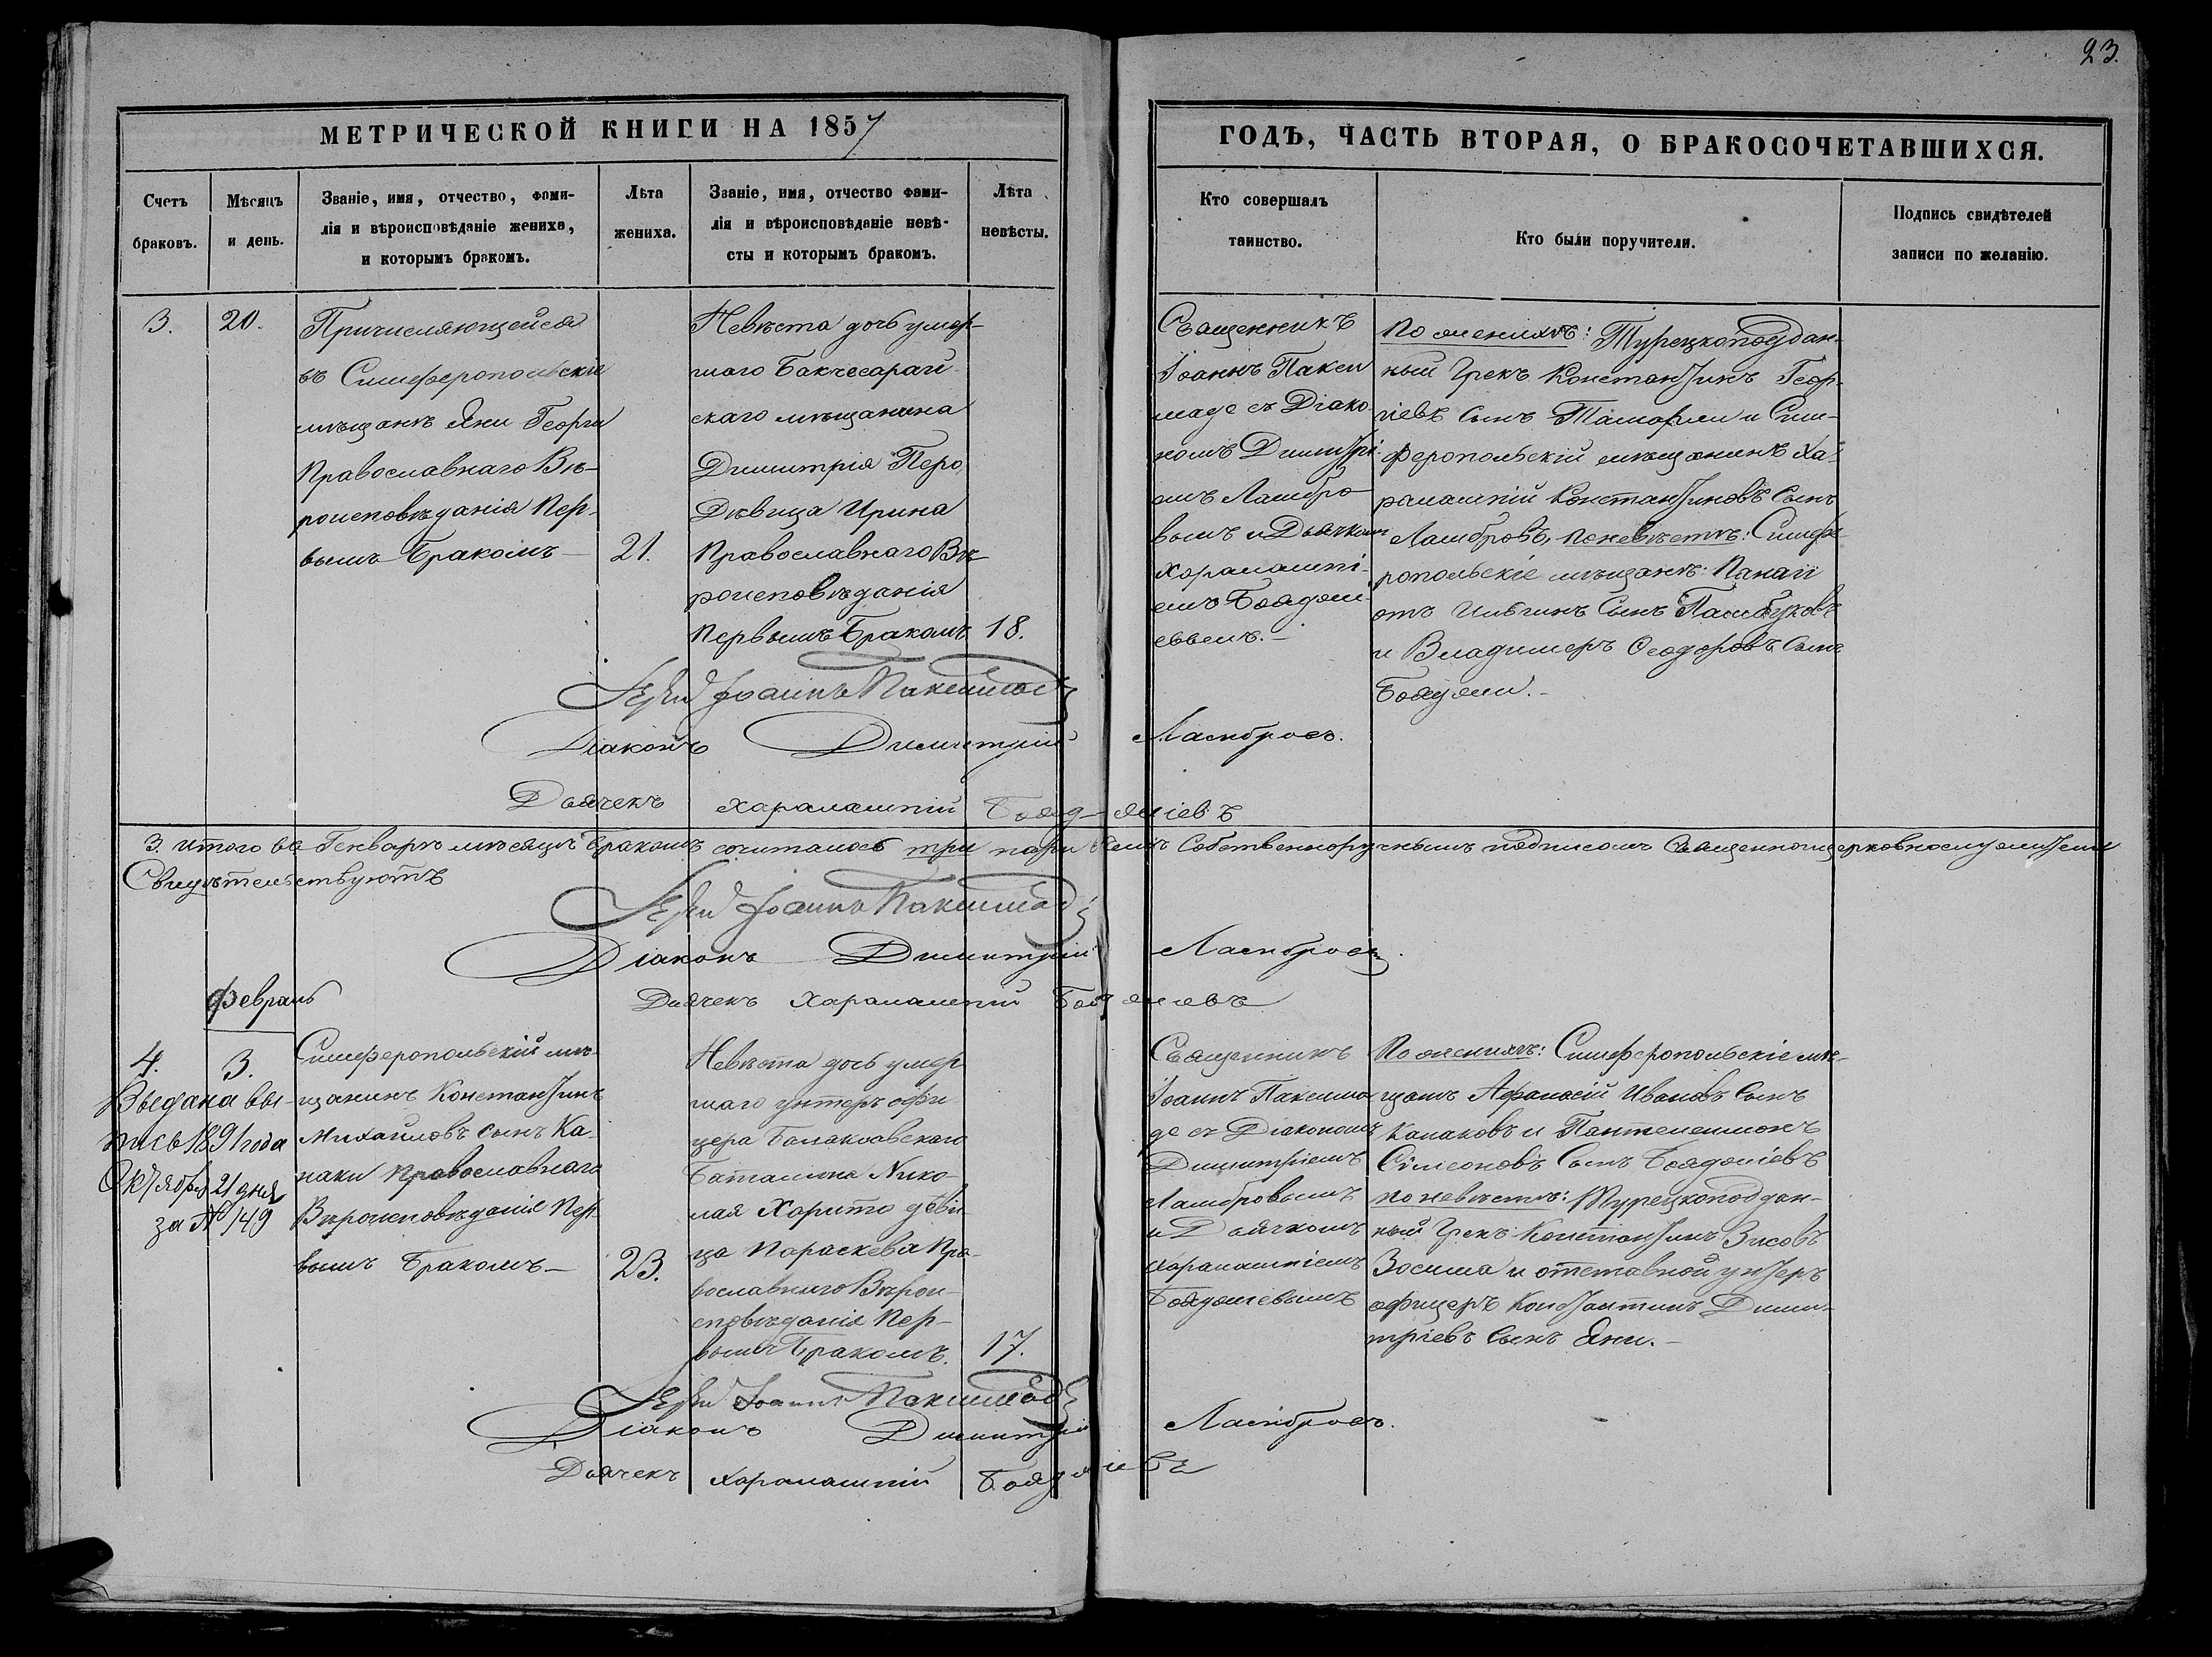 23.
МЕТРИЧЕСКОЙ КНИГИ НА 1857
ГОДЪ, ЧАСТЬ ВТОРАЯ, О БРАКОСОЧЕТАВШИХСЯ.
Счетъ
браковъ.
Мѣсяцъ
и день.
Званіе, имя, отчество, фами-
лія и вѣроисповѣданіе жениха,
и которымъ бракомъ.
Лѣта
жениха.
Званіе, имя, отчество фами-
лія и вѣроисповѣданіе невѣ-
сты и которымъ бракомъ.
Лѣта
невѣсты.
Кто совершалъ
таинство.
Кто были поручители.
Подпись свидѣтелей
записи по желанію.
3.
20.
Причисляющейся
въ Симферопольскіе
мѣщанѣ Яни Георги
Православнаго Вѣ-
роисповѣданія Пер-
вымъ Бракомъ—
21.
Невѣста дочь умер-
шаго Бакчесарай-
скаго мѣщанина
Димитрія Перо
Дѣвица Ирина
Православнаго Вѣ-
роисповѣданія
Первымъ Бракомъ
18.
Священникъ
Іоаннъ Пакси
маде съ Діако-
номъ Димитрі-
емъ Ламбро-
вымъ и Дьячкомъ
Харалампі-
емъ Бояджи-
евымъ.—
По женихѣ: Турецкоподдан-
ный Грекъ Константинъ Геор-
гіевъ Сынъ и Сим-
феропольскій мѣщанинъ Ха-
ралампій Константиновъ Сынъ
Ламбровъ, по невѣстѣ: Симфе-
ропольскіе мѣщанѣ: Панаи
отъ Ильинъ Сынъ
и Владимеръ Ѳеодоровъ Сынъ
Іерей Іоаннъ Паксимаде
Діаконъ Димитрій Ламбровъ.
Дьячекъ Харалампій Бояджіевъ
3. Итого въ Генварѣ мѣсяцѣ Бракомъ сочиталось три пары Семъ Собственноручнымъ подписомъ Священноцерковнослужители
Свидѣтельствуютъ
Іерей Іоаннъ Паксимаде
Діаконъ Димитрій Ламбровъ.
Дьячекъ Харалампій Бояджіевъ
Февраль
4.
3.
Выдана вы-
пись 1891 года
Октября 21 дня
за № 149
Симферопольскій мѣ-
щанинъ Константинъ
Михайловъ сынъ Ка-
наки Православнаго
Вѣроисповѣданія Пер-
вымъ Бракомъ—
23.
Невѣста дочь умер-
шаго унтеръ офи
цера Балаклавскаго
Баталіона Нико-
лая Харито дѣви
ца Параскева Пра-
вославнаго Вѣрои-
сповѣданія Пер-
вымъ Бракомъ.
17.
Священникъ
Іоаннъ Паксима
де съ Діакономъ
Димитріемъ
Ламбровымъ
и Дьячкомъ
Харалампіемъ
Бояджіевымъ
По женихѣ: Симферопольскіе мѣ-
щанѣ Афанасій Ивановъ Сынъ
Канаковъ и Пантелеимонъ
Симеоновъ Сынъ Бояджіевъ
по невѣстѣ: Турецкоподдан-
ный Грекъ Константинъ
Зосима и отставной унтеръ
офицеръ Константинъ Дими-
тріевъ Сынъ Яни.—
Іерей Іоаннъ Паксимаде
Діаконъ Димитрій Ламбровъ.
Дьячекъ Харалампій Бояджіевъ